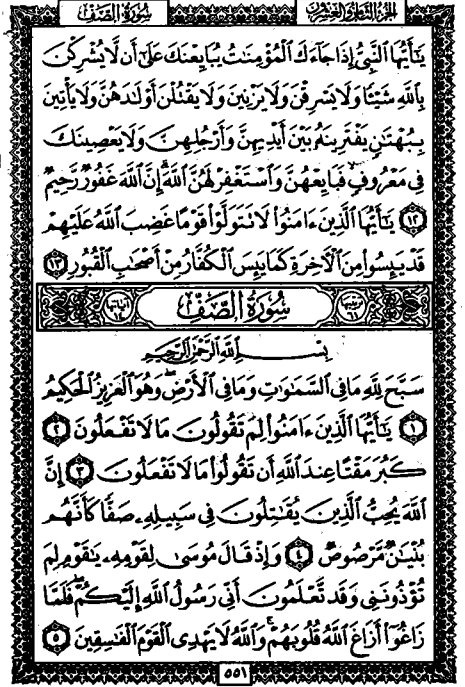 سُورَةُ الصَّفِّ
الجزء الثامن والعشرون
يَٰٓأَيُّهَا النَّبِىُّ إِذَا جَآءَكَ الْمُؤْمِنَٰتُ يُبَايِعْنَكَ عَلَىٰٓ أَن لَّا يُشْرِكْنَ
بِاللَّهِ شَيْـًٔا وَلَا يَسْرِقْنَ وَلَا يَزْنِينَ وَلَا يَقْتُلْنَ أَوْلَٰدَهُنَّ وَلَا يَأْتِينَ
بِبُهْتَٰنٍ يَفْتَرِينَهُۥ بَيْنَ أَيْدِيهِنَّ وَأَرْجُلِهِنَّ وَلَا يَعْصِينَكَ
فِى مَعْرُوفٍ فَبَايِعْهُنَّ وَاسْتَغْفِرْ لَهُنَّ اللَّهَ إِنَّ اللَّهَ غَفُورٌ رَّحِيمٌ
١٢ يَٰٓأَيُّهَا الَّذِينَ ءَامَنُوا لَا تَتَوَلَّوْا قَوْمًا غَضِبَ اللَّهُ عَلَيْهِمْ
قَدْ يَئِسُوا مِنَ الْـَٔاخِرَةِ كَمَا يَئِسَ الْكُفَّارُ مِنْ أَصْحَٰبِ الْقُبُورِ ١٣
ترتيبها ٦١ سُورَةُ الصَّفِّ آياتها ١٤
بِسْمِ اللَّهِ الرَّحْمَٰنِ الرَّحِيمِ
سَبَّحَ لِلَّهِ مَا فِى السَّمَٰوَٰتِ وَمَا فِى الْأَرْضِ وَهُوَ الْعَزِيزُ الْحَكِيمُ
١ يَٰٓأَيُّهَا الَّذِينَ ءَامَنُوا لِمَ تَقُولُونَ مَا لَا تَفْعَلُونَ ٢
كَبُرَ مَقْتًا عِندَ اللَّهِ أَن تَقُولُوا مَا لَا تَفْعَلُونَ ٣ إِنَّ
اللَّهَ يُحِبُّ الَّذِينَ يُقَٰتِلُونَ فِى سَبِيلِهِۦ صَفًّا كَأَنَّهُم
بُنْيَٰنٌ مَّرْصُوصٌ ٤ وَإِذْ قَالَ مُوسَىٰ لِقَوْمِهِۦ يَٰقَوْمِ لِمَ
تُؤْذُونَنِى وَقَد تَّعْلَمُونَ أَنِّى رَسُولُ اللَّهِ إِلَيْكُمْ فَلَمَّا
زَاغُوٓا أَزَاغَ اللَّهُ قُلُوبَهُمْ وَاللَّهُ لَا يَهْدِى الْقَوْمَ الْفَٰسِقِينَ ٥
٥٥١